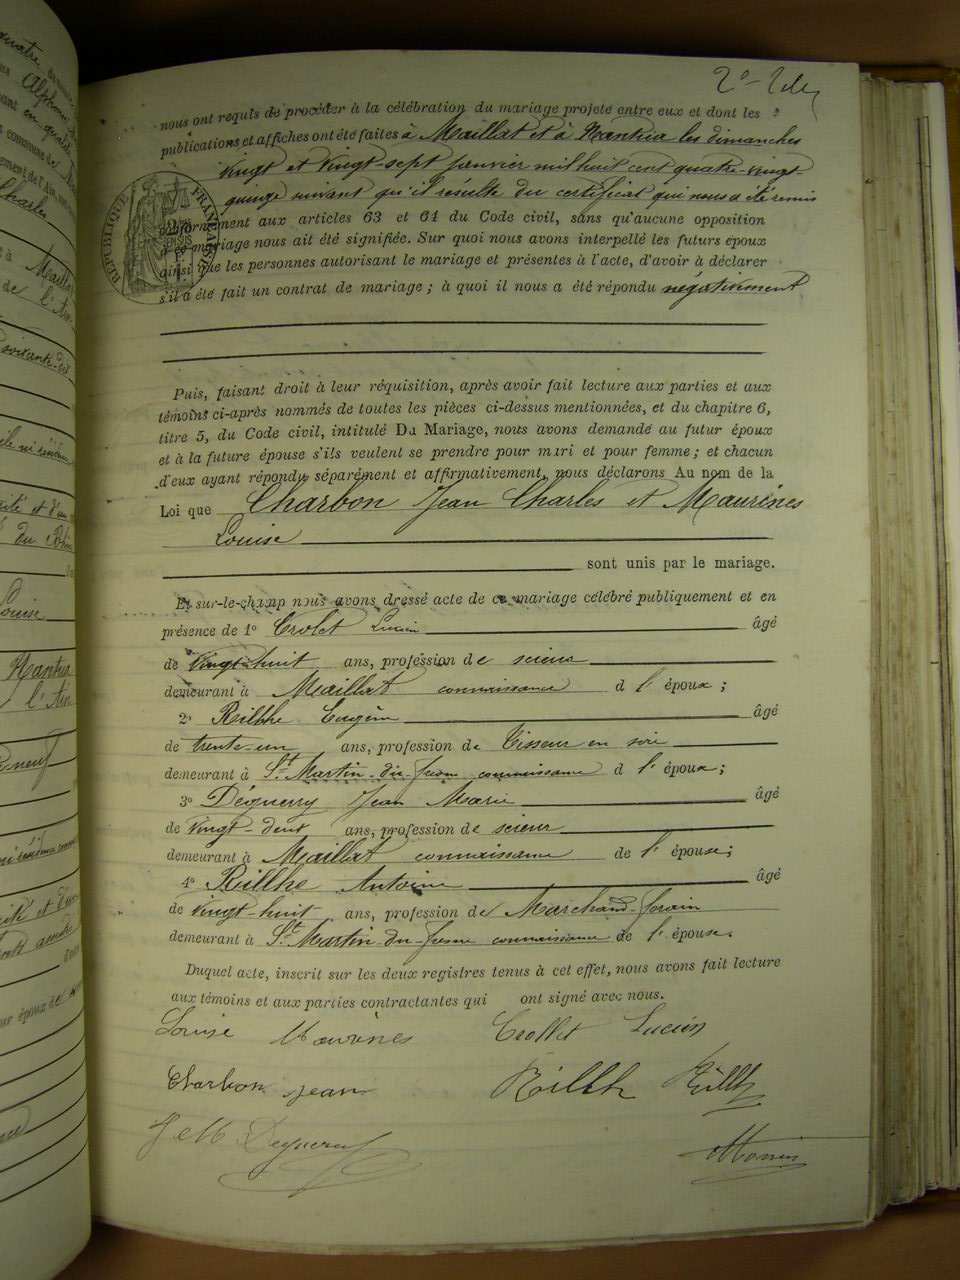 nous ont requis de procéder à la célébration du mariage projeté entre eux et dont les
publications et affiches ont été faites à Maillat et à Nantua les dimanches
vingt et vingt-sept Janvier mil huit cent quatre-vingt-
quinze suivant qu'il résulte du certificat qui nous a été remis
conformément aux articles 63 et 64 du Code civil, sans qu'aucune opposition
à ce mariage nous ait été signifiée. Sur quoi nous avons interpellé les futurs époux
ainsi que les personnes autorisant le mariage et présentes à l'acte, d'avoir à déclarer
s'il a été fait un contrat de mariage ; à quoi il nous a été répondu négativement
RÉPUBLIQUE FRANÇAISE
Puis, faisant droit à leur réquisition, après avoir fait lecture aux parties et aux
témoins ci-après nommés de toutes les pièces ci-dessus mentionnées, et du chapitre 6,
titre 5, du Code civil, intitulé Du Mariage, nous avons demandé au futur époux
et à la future épouse s'ils veulent se prendre pour mari et pour femme ; et chacun
d'eux ayant répondu séparément et affirmativement, nous déclarons Au nom de la
Loi que Charbon Jean Charles et Maurènes
Louise
sont unis par le mariage.
Et sur-le-champ nous avons dressé acte de ce mariage célébré publiquement et en
présence de 1° Crolet Lucien âgé
de vingt-huit ans, profession de scieur
demeurant à Maillat connaissance d l' époux ;
2° Rilthe Eugène âgé
de trente-un ans, profession de Tisseur en soie
demeurant à St Martin-du-frêne connaissance d l' époux ;
3° Déguerry Jean Marie âgé
de vingt-deux ans, profession de scieur
demeurant à Maillat connaissance de l' épouse ;
4° Rilthe Antoine âgé
de vingt-huit ans, profession de Marchand-forain
demeurant à St Martin-du-fresne connaissance de l' épouse.
Duquel acte, inscrit sur les deux registres tenus à cet effet, nous avons fait lecture
aux témoins et aux parties contractantes qui ont signé avec nous.
Louise Maurènes Crollet Lucien
Charbon Jean Rilth Rilth
J M Deguerry Monin